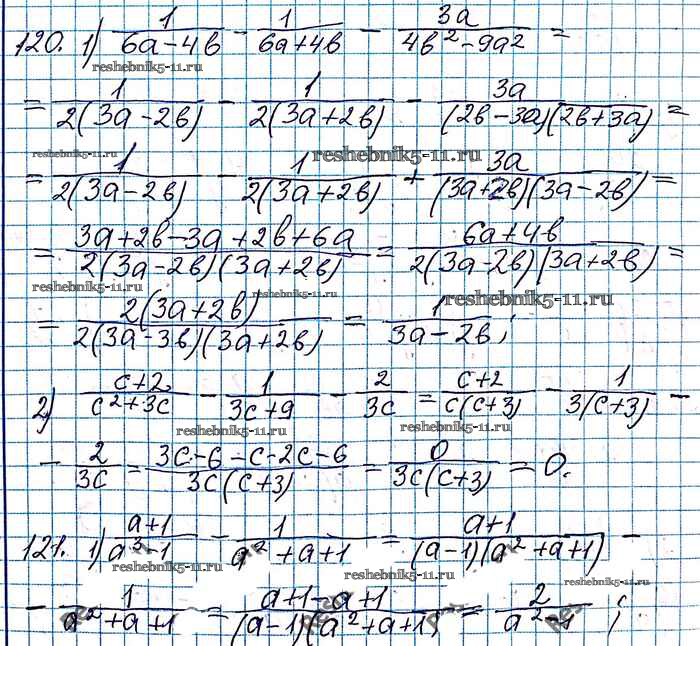 120. 1) 1/(6a-4b) - 1/(6a+4b) - 3a/(4b²-9a²) =
reshebnik5-11.ru
= 1/(2(3a-2b)) - 1/(2(3a+2b)) - 3a/((2b-3a)(2b+3a)) =
reshebnik5-11.ru reshebnik5-11.ru
= 1/(2(3a-2b)) - 1/(2(3a+2b)) + 3a/((3a+2b)(3a-2b)) =
= (3a+2b-3a+2b+6a)/(2(3a-2b)(3a+2b)) = (6a+4b)/(2(3a-2b)(3a+2b)) =
reshebnik5-11.ru reshebnik5-11.ru reshebnik5-11.ru
= 2(3a+2b)/(2(3a-3b)(3a+2b)) = 1/(3a-2b);
2) (c+2)/(c²+3c) - 1/(3c+9) - 2/(3c) = (c+2)/(c(c+3)) - 1/(3(c+3)) -
reshebnik5-11.ru reshebnik5-11.ru
- 2/(3c) = (3c-6-c-2c-6)/(3c(c+3)) = 0/(3c(c+3)) = 0.
121. 1) (a+1)/(a³-1) - 1/(a²+a+1) = (a+1)/((a-1)(a²+a+1)) -
reshebnik5-11.ru reshebnik5-11.ru reshebnik5-11.ru
- 1/(a²+a+1) = (a+1-a+1)/((a-1)(a²+a+1)) = 2/(a²-1);